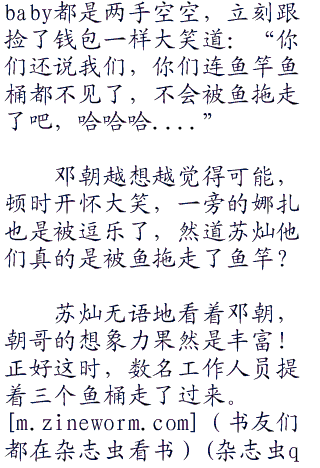 baby都是两手空空，立刻跟
捡了钱包一样大笑道：“你
们还说我们，你们连鱼竿鱼
桶都不见了，不会被鱼拖走
了吧，哈哈哈....”
邓朝越想越觉得可能，
顿时开怀大笑，一旁的娜扎
也是被逗乐了，然道苏灿他
们真的是被鱼拖走了鱼竿？
苏灿无语地看着邓朝，
朝哥的想象力果然是丰富！
正好这时，数名工作人员提
着三个鱼桶走了过来。
[m.zineworm.com]（书友们
都在杂志虫看书）(杂志虫q